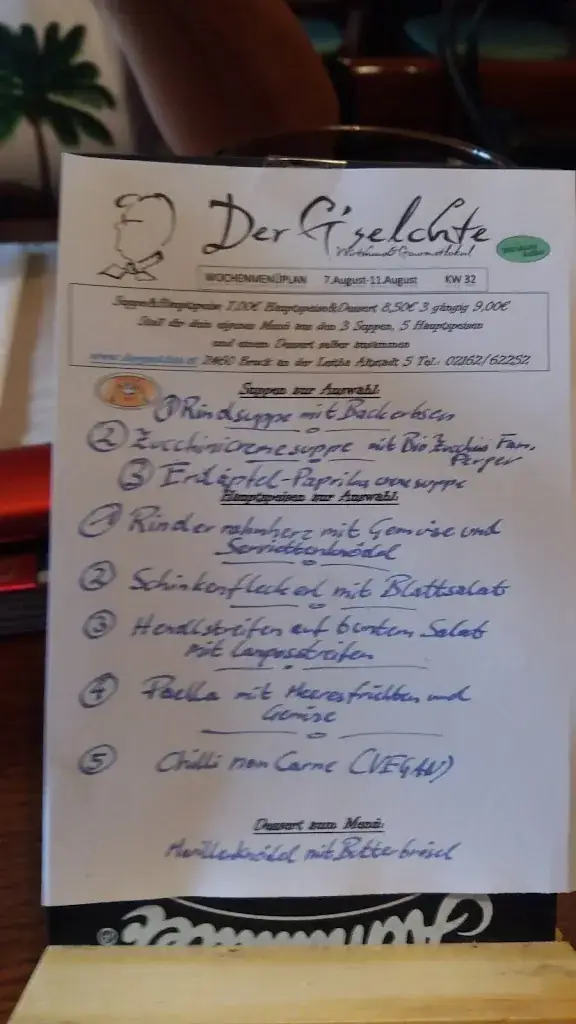 Der G'selchte
Wirtshaus&Gourmetlokal
WOCHENMENÜPLAN 7.August-11.August KW 32
Suppe&Hauptspeise 7,00€ Hauptspeise&Dessert 8,50€ 3 gängig 9,00€
Stell dir dein eigenes Menü aus den 3 Suppen, 5 Hauptspeisen
und einem Dessert selber zusammen
2460 Bruck an der Leitha Altstadt 5 Tel.: 02162/62252
Suppen zur Auswahl:
1 Rindsuppe mit Backerbsen
2 Zucchinicremesuppe mit Bio Zucchinis Fam.
Perger
3 Erdäpfel-Paprikacremesuppe
Hauptspeisen zur Auswahl:
1 Rinderrahmherz mit Gemüse und
Serviettenknödel
2 Schinkenfleckerl mit Blattsalat
3 Hendlstreifen auf buntem Salat
mit Langosstreifen
4 Paella mit Meeresfrüchten und
Gemüse
5 Chilli non Carne (VEGAN)
Dessert zum Menü:
Marillenknödel mit Butterbrösel